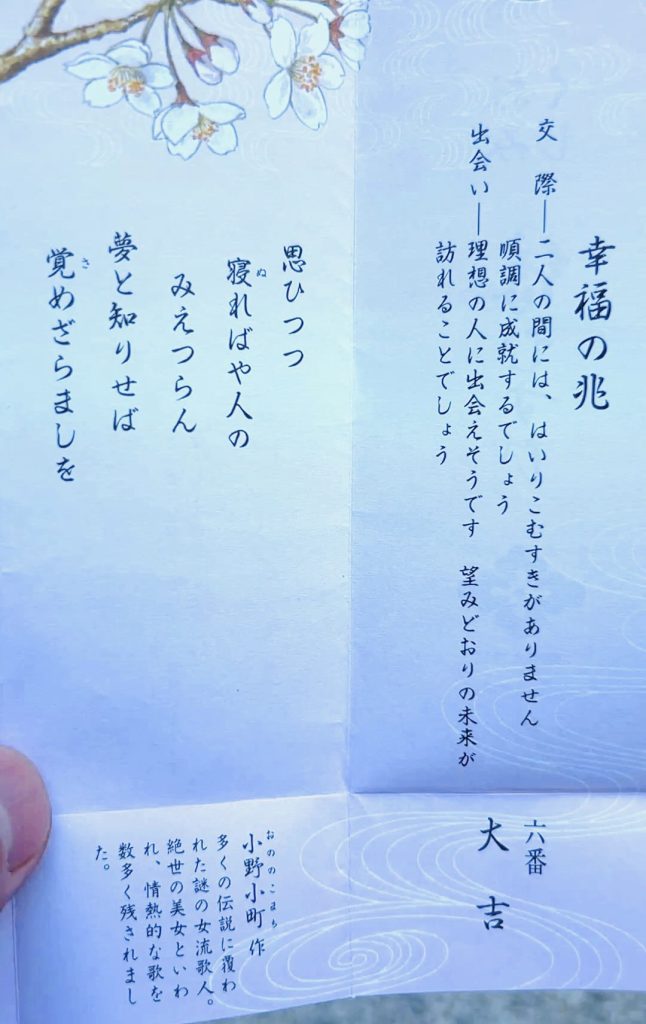 幸福の兆
交際―二人の間には、はいりこむすきがありません
順調に成就するでしょう
出会い―理想の人に出会えそうです　望みどおりの未来が
訪れることでしょう
六番
大吉
思ひつつ
寝ればや人の
ぬ
みえつらん
夢と知りせば
覚めざらましを
さ
小野小町 作
おののこまち
多くの伝説に覆わ
れた謎の女流歌人。
絶世の美女といわ
れ、情熱的な歌を
数多く残されまし
た。